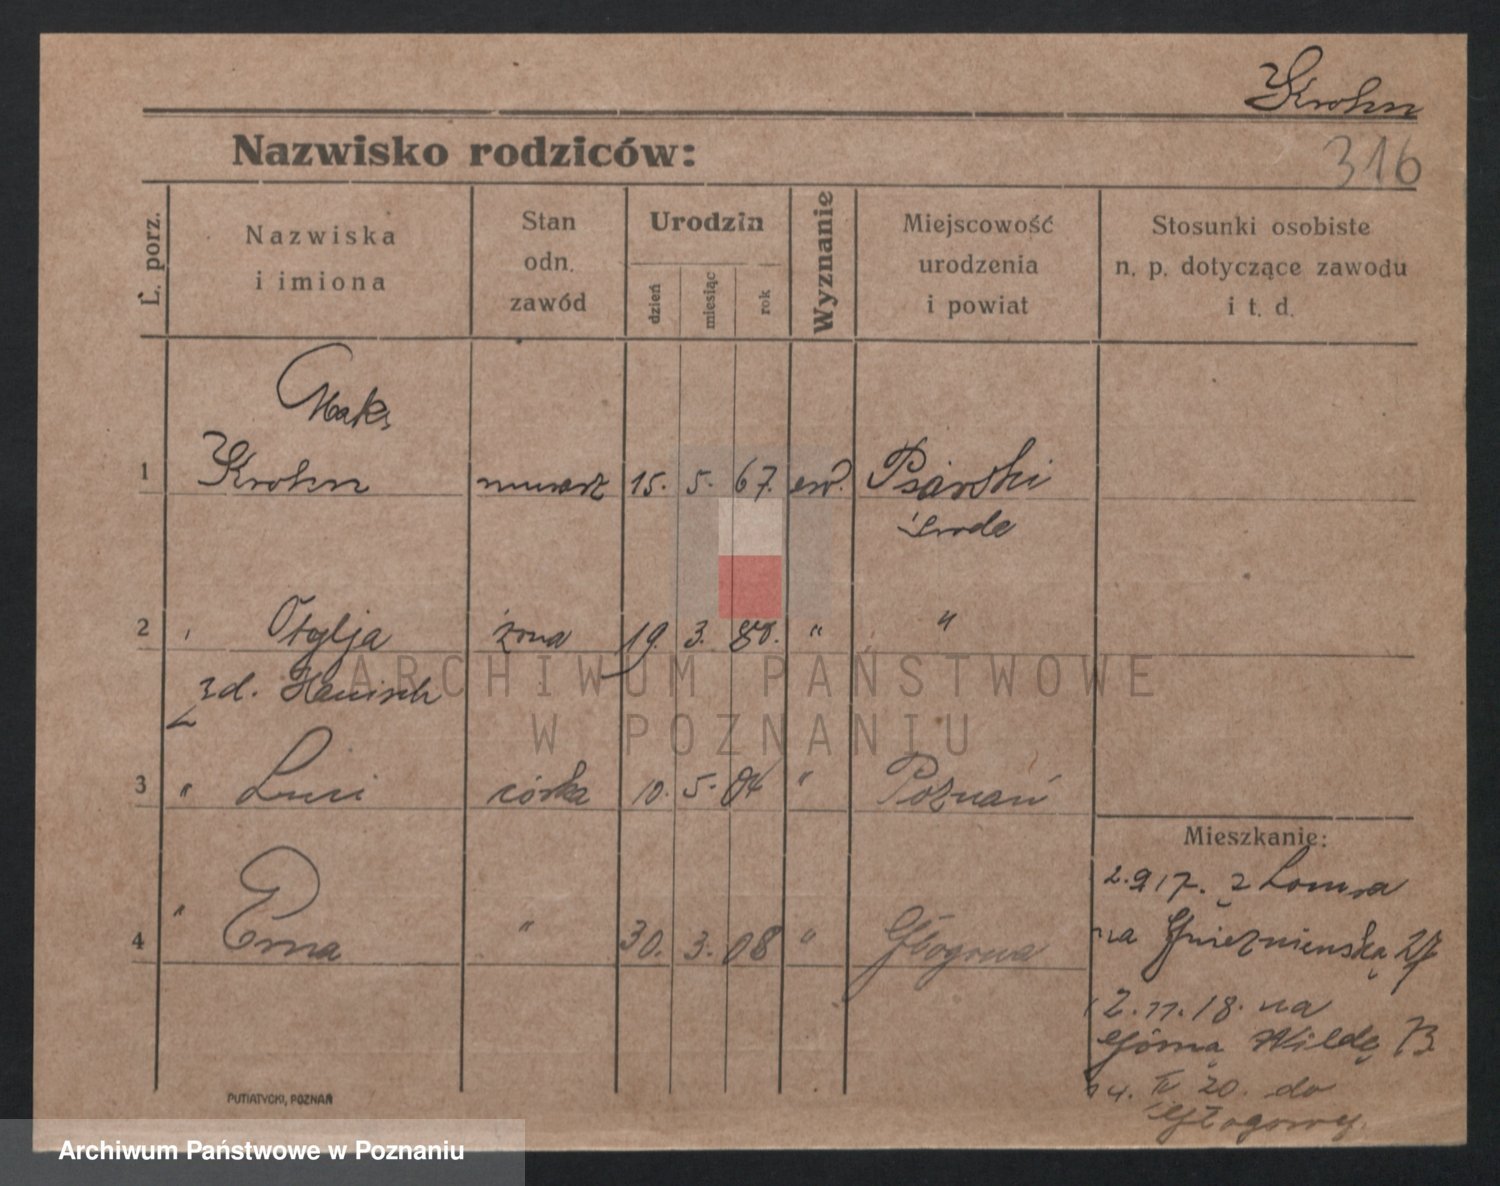 Krohn
316
Nazwisko rodziców:
L. porz.
Nazwiska
i imiona
Stan
odn.
zawód
Urodzin
dzień
miesiąc
rok
Wyznanie
Miejscowość
urodzenia
i powiat
Stosunki osobiste
n. p. dotyczące zawodu
i t. d.
Maks
1 Krohn murarz 15. 5. 67. ew. Psarski
Środa
2 " Otylja żona 19. 3. " "
zd. Hanisch
3 " Luci córka 10. 5. 04 " Poznań
Mieszkanie:
4 " Erna " 30. 3. 08 " Głogowa
2.917. z Lomza
na Gnieznienską 27
2.11.18. na
Górną Wildę 73
4. IV 20. do
Głogowy.
PUTIATYCKI, POZNAŃ
ARCHIWUM PAŃSTWOWE
W POZNANIU
Archiwum Państwowe w Poznaniu